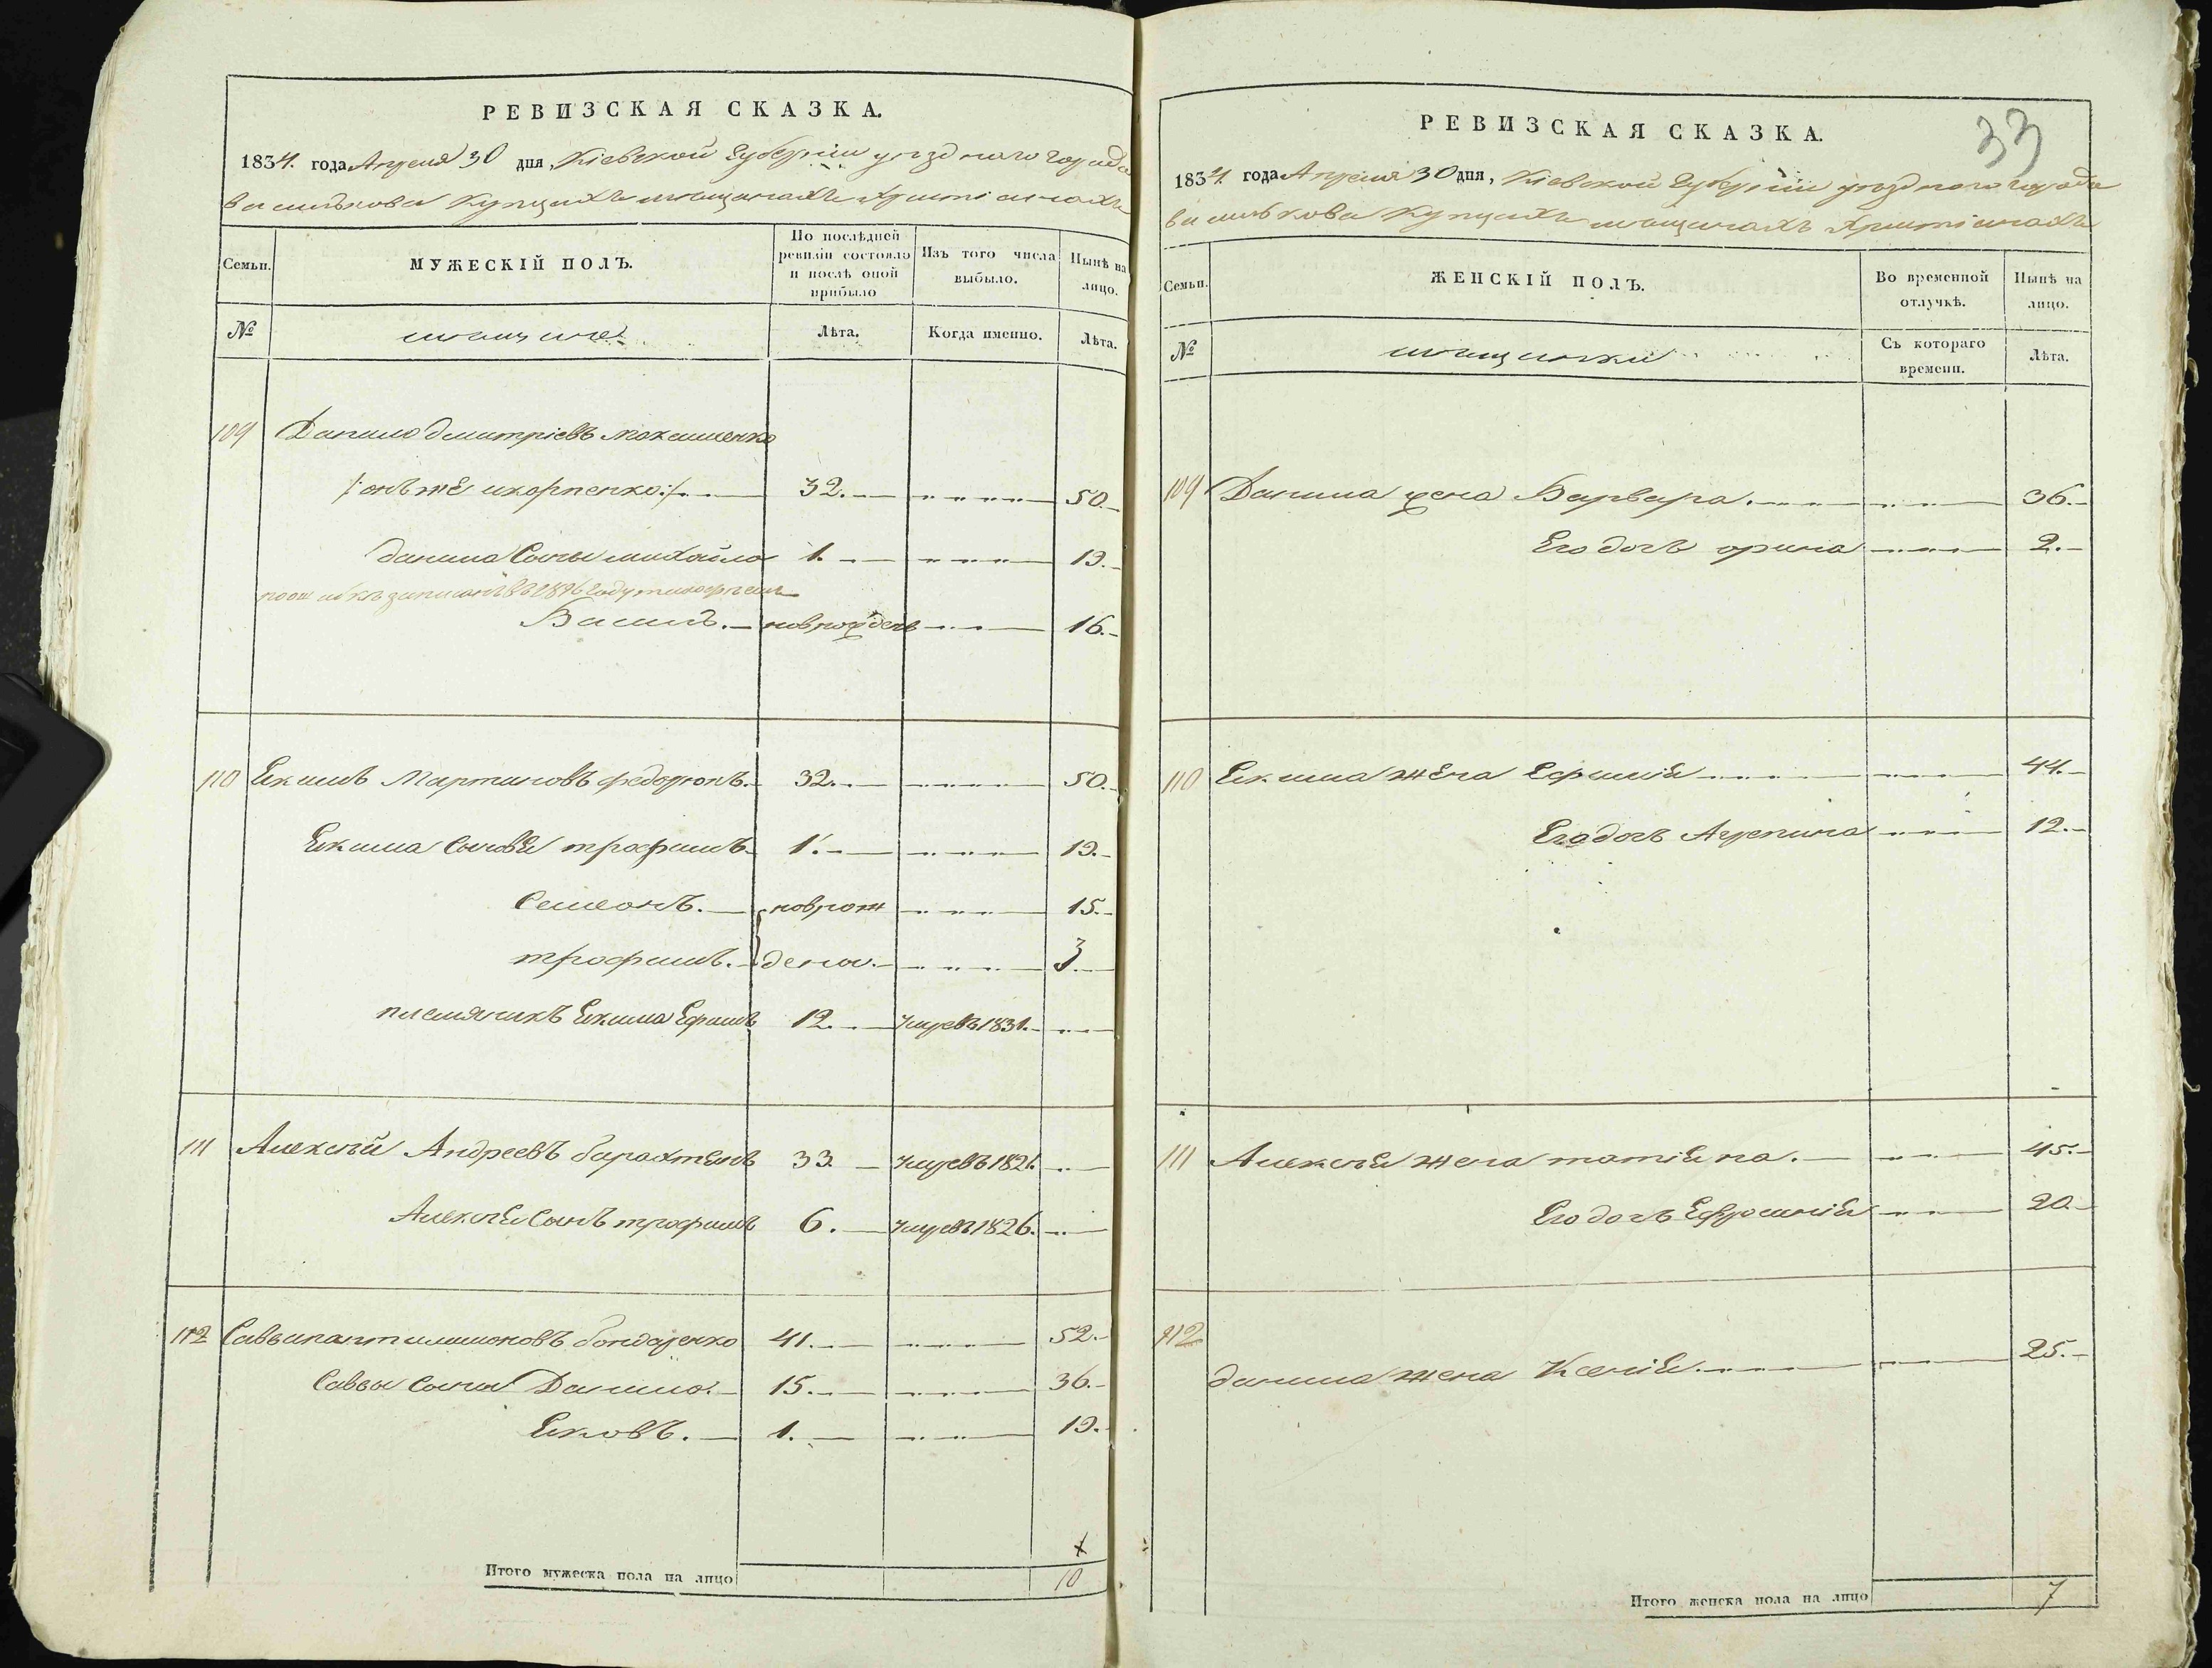 РЕВИЗСКАЯ СКАЗКА.
1834. года Апреля 30 дня, Кіевской Губерніи уезднаго города
василькова Купцахъ мещанахъ христіанахъ
Семьи.
МУЖЕСКІЙ ПОЛЪ.
По послѣдней ревизіи состояло и послѣ оной прибыло
Изъ того числа выбыло.
Нынѣ на лицо.
№
мещане
Лѣта.
Когда именно.
Лѣта.
109 Данило дмитріевъ
/:онъ же 32. 50.
данила Сыны михайло 1. 19.
Василь. новрожден 16.
110 Екимъ Мартиновъ федорюкъ. 32. 50.
Екима Сыновя трофимъ. 1. 19.
Семеонъ. новрож 15.
трофимъ. дены. 3
племяникъ Екима Ефимъ 12. умре въ 1831.
111 Алексѣй Андреевъ 33 умре въ 1821.
Алексѣя Сынъ трофимъ 6. умре въ 1826.
112 Савва пантилимоновъ бондаренко 41. 52.
Саввы Сыны Данило. 15. 36.
Яковъ. 1. 19.
Итого мужеска пола на лицо 10
33
РЕВИЗСКАЯ СКАЗКА.
1834. года Апреля 30 дня, Кіевской Губерніи уезднаго города
василькова Купцахъ мещанахъ христіанахъ
Семьи.
ЖЕНСКІЙ ПОЛЪ.
Во временной отлучкѣ.
Нынѣ на лицо.
№
мещанки
Съ котораго времени.
Лѣта.
109 Данила жена Варвара. 36.
Его дочь орина 2.
110 Екима жена Ефимія 44.
Его дочь Агрепина 12.
111 Алексѣя жена татіяна. 45.
Его дочь Ефросинія 20.
112
данила жена Ксенія. 25.
Итого женска пола на лицо 7